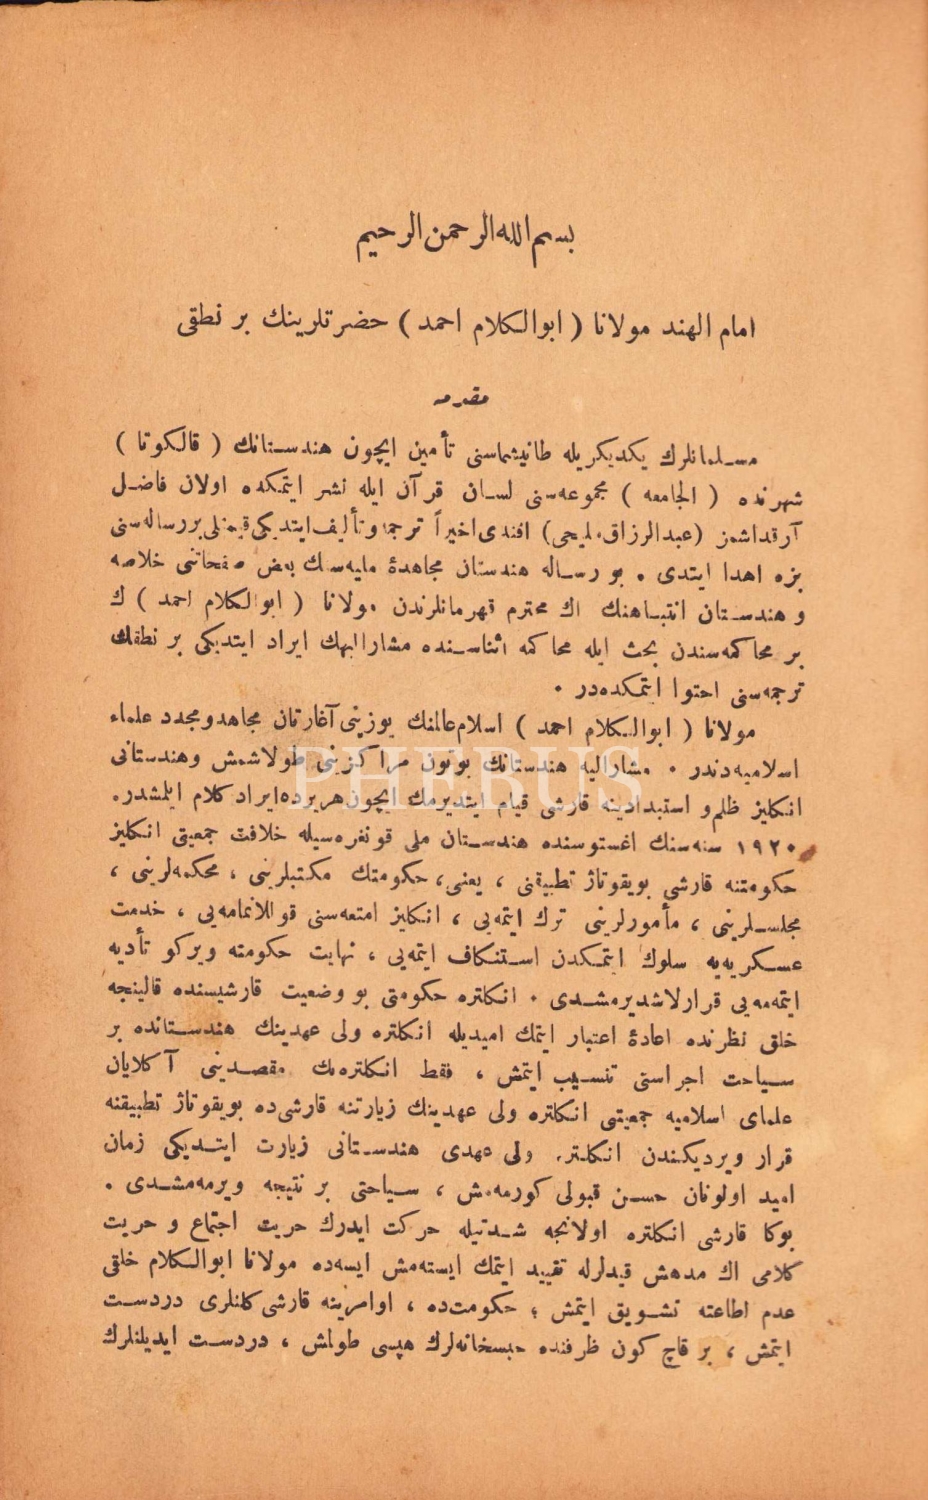 بسم الله الرحمن الرحيم
امام الهند مولانا ( ابوالكلام احمد ) حضرتلرينك بر نطقى
مقدمه
مسلمانلرك يكديكريله طانيشماسنى تأمين ايچون هندستانك ( قالكوتا )
شهرنده ( الجامعه ) مجموعه‌سنى لسان قرآن ايله نشر ايتمكده اولان فاضل
آرقداشمز (عبدالرزاق مليحى) افندى اخيراً ترجمه و تأليف ايتديكى قيمتلى بر رساله‌سنى
بزه اهدا ايتدى . بو رساله هندستان مجاهدۀ مليه‌سنك بعض صفحاتنى خلاصه
و هندستان انتباهنك اك محترم قهرمانلرندن مولانا ( ابوالكلام احمد ) ك
بر محاكمه‌سندن بحث ايله محاكمه اثناسنده مشاراليهك ايراد ايتديكى بر نطقك
ترجمه‌سنى احتوا ايتمكده‌در .
مولانا ( ابوالكلام احمد ) اسلام عالمنك يوزينى آغارتان مجاهد و مجدد علماء
اسلاميه‌دندر . مشاراليه هندستانك بوتون مراكزينى طولاشمش وهندستانى
انكليز ظلم و استبدادينه قارشى قيام ايتديرمك ايچون هر يرده ايراد كلام ايلمشدر.
۱۹۲۰ سنه‌سنك اغستوسنده هندستان ملى قونغره‌سيله خلافت جمعيتى انكليز
حكومتنه قارشى بويقوتاژ تطبيقنى ، يعنى، حكومتك مكتبلرينى ، محكمه‌لرينى ،
مجلسلرينى ، مأمورلرينى ترك ايتمه‌يى ، انكليز امتعه‌سنى قوللانمامه‌يى ، خدمت
عسكريه‌يه سلوك ايتمكدن استنكاف ايتمه‌يى ، نهايت حكومته ويركو تأديه
ايتمه‌مه‌يى قرارلاشديرمشدى . انكلتره حكومتى بو وضعيت قارشيسنده قالينجه
خلق نظرنده اعادۀ اعتبار ايتمك اميديله انكلتره ولى عهدينك هندستانده بر
سياحت اجراسنى تنسيب ايتمش ، فقط انكلتره‌نك مقصدينى آكلايان
علماى اسلاميه جمعيتى انكلتره ولى عهدينك زيارتنه قارشى‌ده بويقوتاژ تطبيقنه
قرار ويرديكندن انكلتره ولى عهدى هندستانى زيارت ايتديكى زمان
اميد اولونان حسن قبولى كورمه‌مش ، سياحتى بر نتيجه ويرمه‌مشدى .
بوكا قارشى انكلتره اولانجه شدتيله حركت ايدرك حريت اجتماع و حريت
كلامى اك مدهش قيدلرله تقييد ايتمك ايسته‌مش ايسه‌ده مولانا ابوالكلام خلقى
عدم اطاعته تشويق ايتمش ؛ حكومت‌ده ، اوامرينه قارشى كلنلرى دردست
ايتمش ، بر قاچ كون ظرفنده حبسخانه‌لرك هپسى طولمش ، دردست ايديلنلرك
PHEBUS